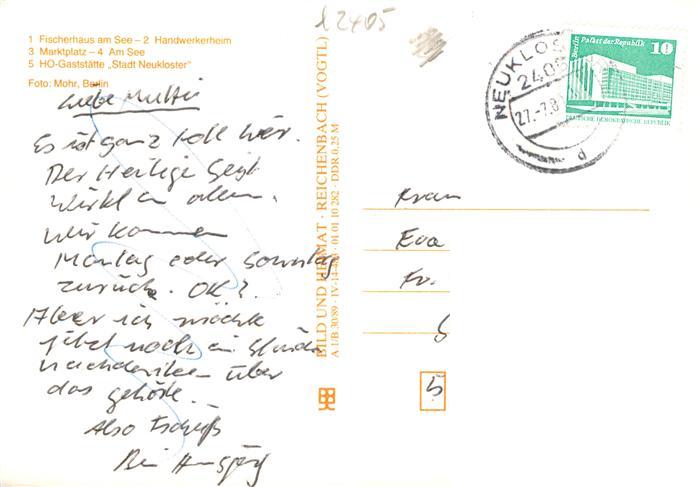 l 2405
1 Fischerhaus am See – 2 Handwerkerheim
3 Marktplatz – 4 Am See
5 HO-Gaststätte „Stadt Neukloster"
Foto: Mohr, Berlin
Liebe Mutti
Es ist ganz toll hier.
Der Heilige Geist
wirkt in allen.
Wir kommen
Montag oder Sonntag
zurück. OK?
Aber ich möchte
jetzt noch ein
nachdenken über
das gehörte.
Also Tschüß
Dein
BILD UND HEIMAT · REICHENBACH (VOGTL)
A 1/B 30/89 · IV-14- 01 01 10 282 · DDR 0,25 M
NEUKLOS
2405
27.-7.8
d
Berlin Palast der Republik 10
DEUTSCHE DEMOKRATISCHE REPUBLIK
Frau
Eva
Fr.
5